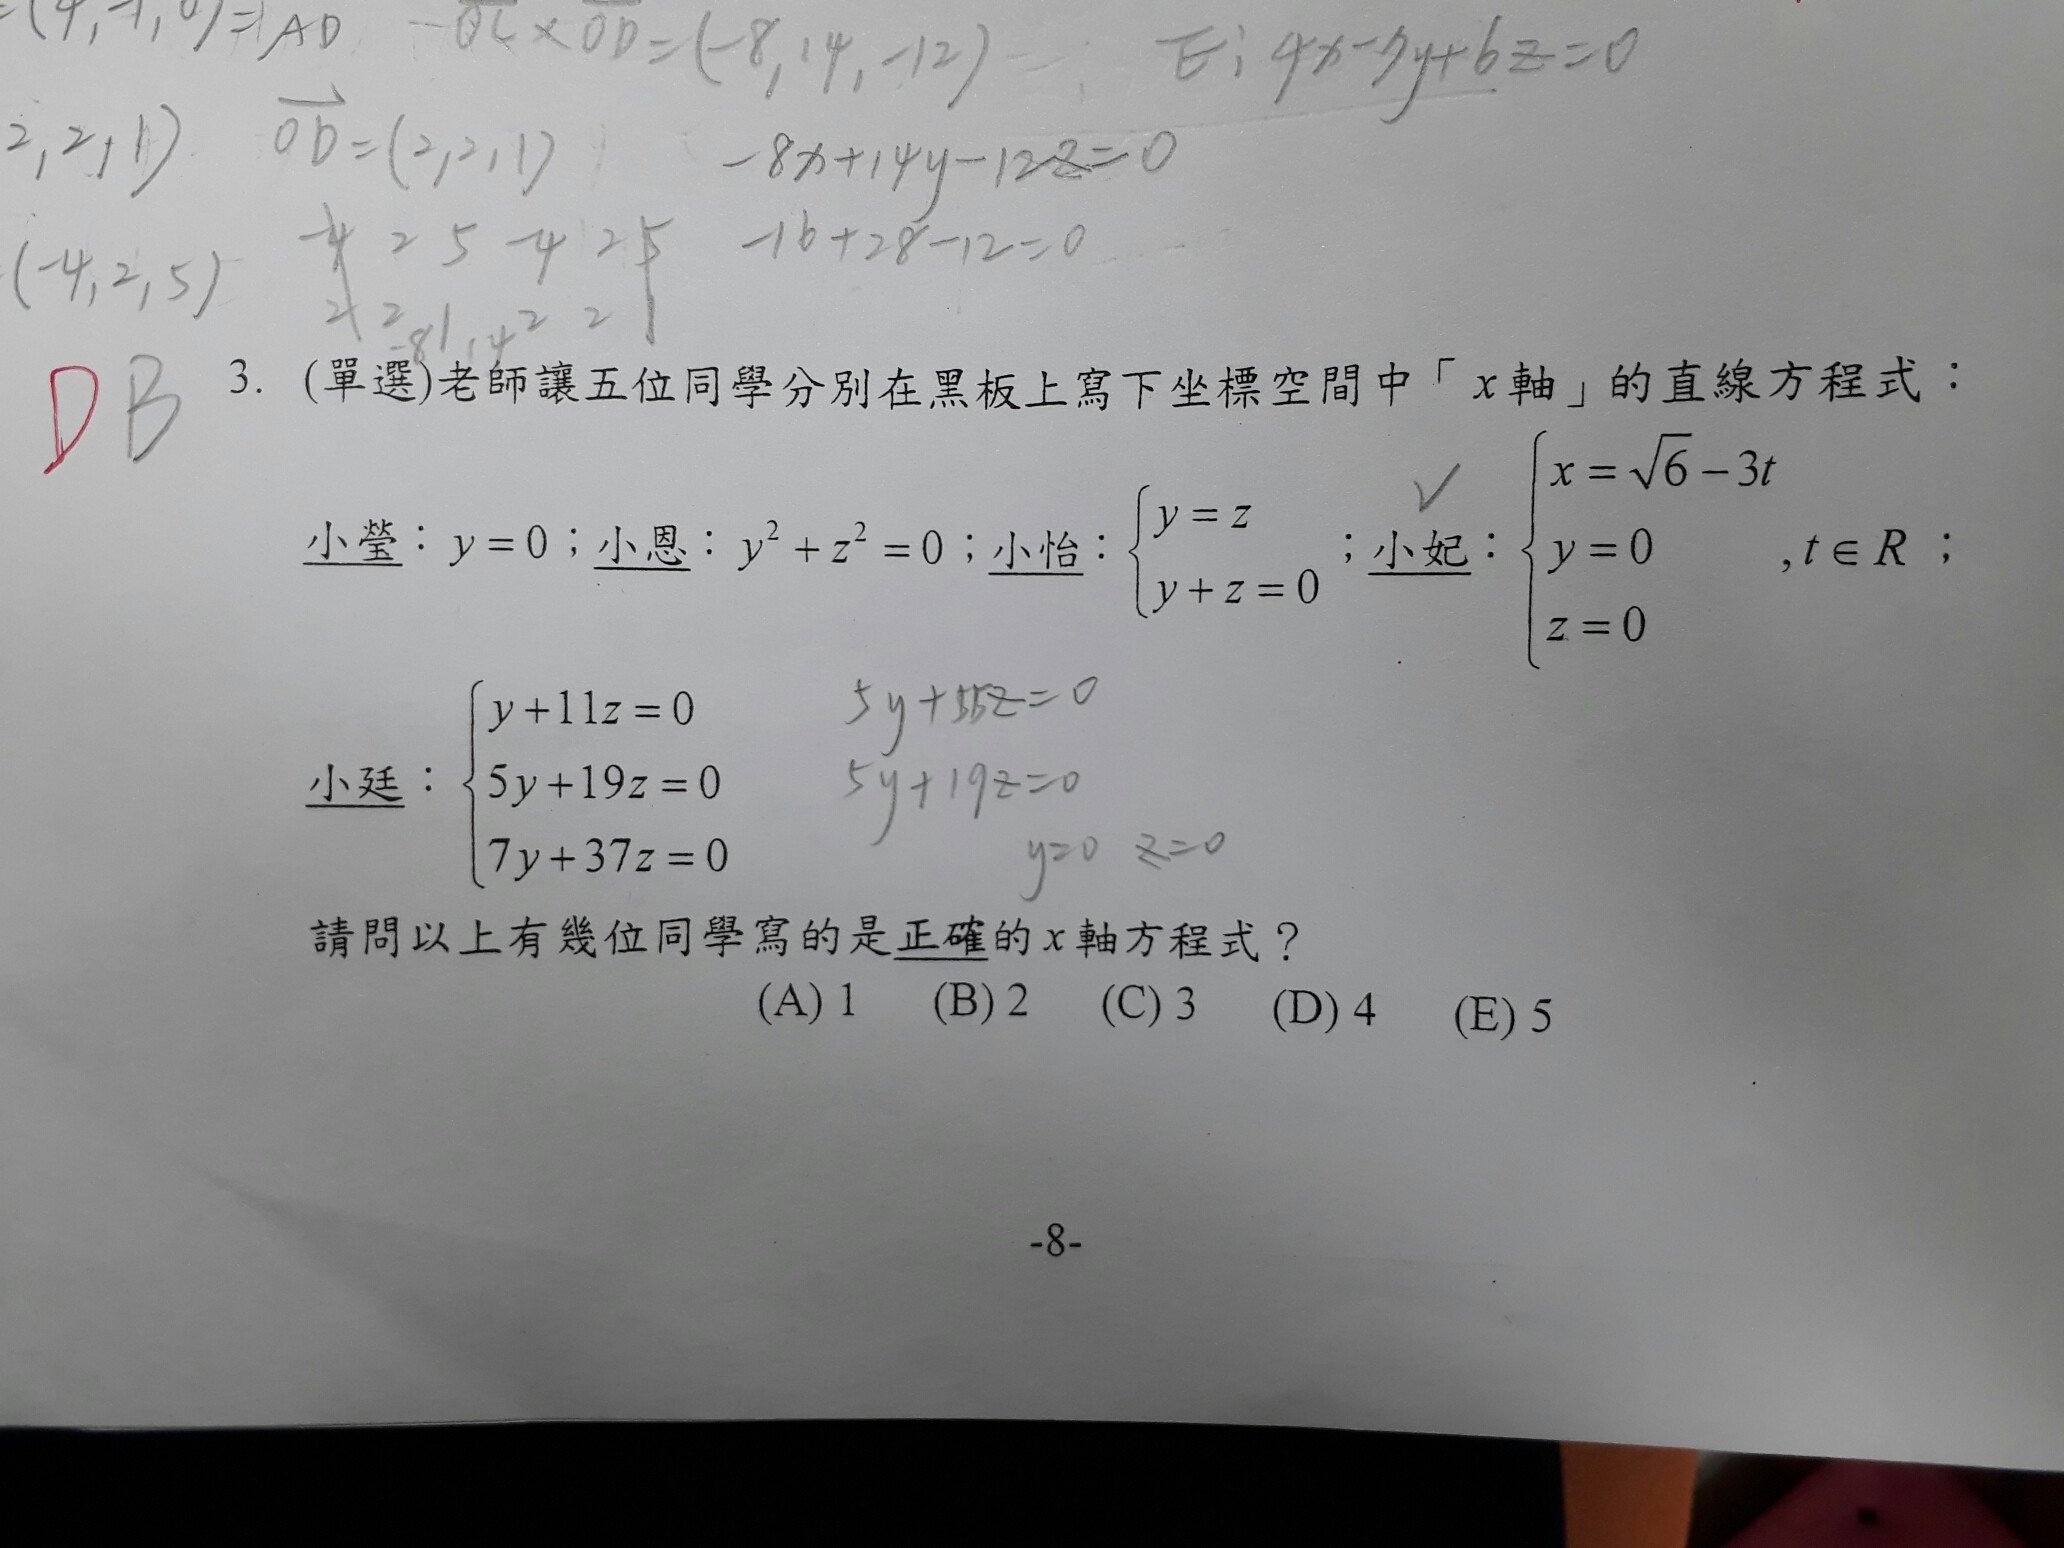 =(4,-1,0)=AD -OC×OD=(-8,14,-12) E: 4x-7y+6z=0
2,2,1) OD=(2,2,1) -8x+14y-12z=0
(-4,2,5) -4 2 5 -4 2 5 -16+28-12=0
2 2 1 2 2 1
-8, 14
D B 3. (單選)老師讓五位同學分別在黑板上寫下坐標空間中「x軸」的直線方程式：
小瑩：y=0；小恩：y²+z²=0；小怡：{y=z
y+z=0；小妃：{x=√6-3t
y=0
z=0 ,t∈R；
小廷：{y+11z=0
5y+19z=0
7y+37z=0
5y+55z=0
5y+19z=0
y=0 z=0
請問以上有幾位同學寫的是正確的x軸方程式？
(A) 1 (B) 2 (C) 3 (D) 4 (E) 5
-8-